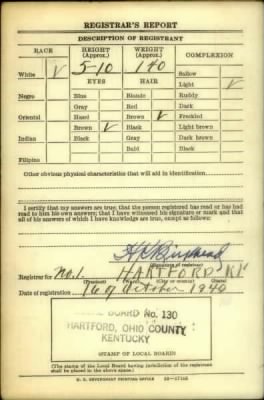 REGISTRAR'S REPORT
DESCRIPTION OF REGISTRANT
RACE HEIGHT (Approx.) WEIGHT (Approx.) COMPLEXION
5-10 140
Sallow
White ✓ EYES HAIR Light ✓
Negro Blue Blonde Ruddy
Gray Red Dark
Oriental Hazel Brown ✓ Freckled
Brown ✓ Black Light brown
Indian Black Gray Dark brown
Bald Black
Filipino
Other obvious physical characteristics that will aid in identification
I certify that my answers are true; that the person registered has read or has had
read to him his own answers; that I have witnessed his signature or mark and that
all of his answers of which I have knowledge are true, except as follows:
(Signature of registrar)
Registrar for No. 1 HARTFORD KY
(Precinct) (Ward) (City or county) (State)
Date of registration 16 of October 1940
BOARD No. 130
HARTFORD, OHIO COUNTY
KENTUCKY
(STAMP OF LOCAL BOARD)
(The stamp of the Local Board having jurisdiction of the registrant
shall be placed in the above space.)
U. S. GOVERNMENT PRINTING OFFICE